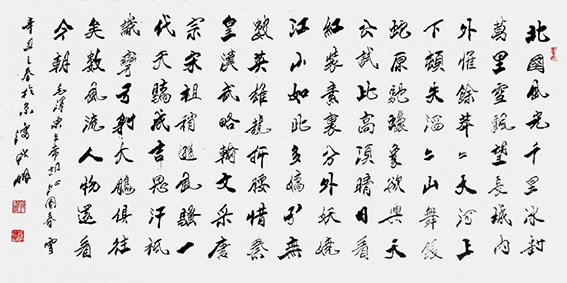 北國風光千里冰封
萬里雪飄望長城內
外惟餘莽〻大河上
下頓失滔〻山舞銀
蛇原馳蠟象欲與天
公試比高須晴日看
紅裝素裹分外妖嬈
江山如此多嬌引無
數英雄競折腰惜秦
皇漢武略輸文采唐
宗宋祖稍遜風騷一
代天驕成吉思汗祇
識彎弓射大鵰俱往
矣數風流人物還看
今朝 毛澤東主席詞沁園春雪
辛丑之春於京